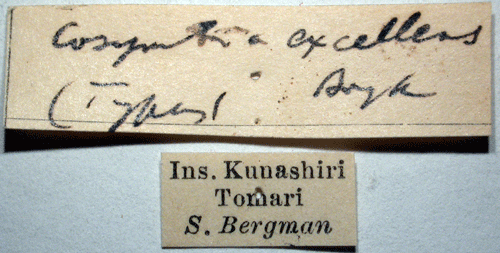 Cosymbia excellens
(Type) Bryk
Ins. Kunashiri
Tomari
S. Bergman